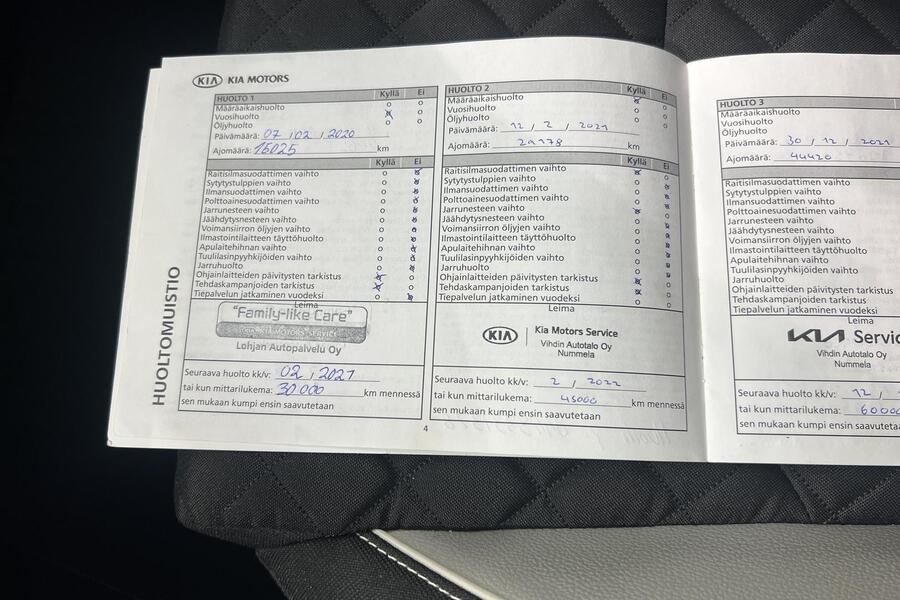 KIA KIA MOTORS
HUOLTOMUISTIO
HUOLTO 1 Kyllä Ei
Määräaikaishuolto
Vuosihuolto
Öljyhuolto
Päivämäärä: 07 / 02 / 2020
Ajomäärä: 15025 km
Kyllä Ei
Raitisilmasuodattimen vaihto
Sytytystulppien vaihto
Ilmansuodattimen vaihto
Polttoainesuodattimen vaihto
Jarrunesteen vaihto
Jäähdytysnesteen vaihto
Voimansiirron öljyjen vaihto
Ilmastointilaitteen täyttöhuolto
Apulaitehihnan vaihto
Tuulilasinpyyhkijöiden vaihto
Jarruhuolto
Ohjainlaitteiden päivitysten tarkistus
Tehdaskampanjoiden tarkistus
Tiepalvelun jatkaminen vuodeksi
Leima
"Family-like Care"
KIA MOTORS SERVICE
Lohjan Autopalvelu Oy
Seuraava huolto kk/v: 02 / 2021
tai kun mittarilukema: 30 000 km mennessä
sen mukaan kumpi ensin saavutetaan
4
HUOLTO 2 Kyllä Ei
Määräaikaishuolto
Vuosihuolto
Öljyhuolto
Päivämäärä: 12 / 2 / 2021
Ajomäärä: 29178 km
Kyllä Ei
Raitisilmasuodattimen vaihto
Sytytystulppien vaihto
Ilmansuodattimen vaihto
Polttoainesuodattimen vaihto
Jarrunesteen vaihto
Jäähdytysnesteen vaihto
Voimansiirron öljyjen vaihto
Ilmastointilaitteen täyttöhuolto
Apulaitehihnan vaihto
Tuulilasinpyyhkijöiden vaihto
Jarruhuolto
Ohjainlaitteiden päivitysten tarkistus
Tehdaskampanjoiden tarkistus
Tiepalvelun jatkaminen vuodeksi
Leima
KIA Kia Motors Service
Vihdin Autotalo Oy
Nummela
Seuraava huolto kk/v: 2 / 2022
tai kun mittarilukema: 45000 km mennessä
sen mukaan kumpi ensin saavutetaan
HUOLTO 3
Määräaikaishuolto
Vuosihuolto
Öljyhuolto
Päivämäärä: 30 / 12 / 2021
Ajomäärä: 44420
Raitisilmasuodattimen vaihto
Sytytystulppien vaihto
Ilmansuodattimen vaihto
Polttoainesuodattimen vaihto
Jarrunesteen vaihto
Jäähdytysnesteen vaihto
Voimansiirron öljyjen vaihto
Ilmastointilaitteen täyttöhuolto
Apulaitehihnan vaihto
Tuulilasinpyyhkijöiden vaihto
Jarruhuolto
Ohjainlaitteiden päivitysten tarkistus
Tehdaskampanjoiden tarkistus
Tiepalvelun jatkaminen vuodeksi
Leima
KIA Servic
Vihdin Autotalo Oy
Nummela
Seuraava huolto kk/v: 12 /
tai kun mittarilukema: 6000
sen mukaan kumpi ensin saavutetaan